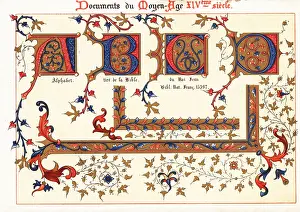 Documents du Moyen-Age XIVème siècle.
A B C D
Alphabet tiré de la Bible. du Roi Jean
Bibl. Nat. Franç. 15397.